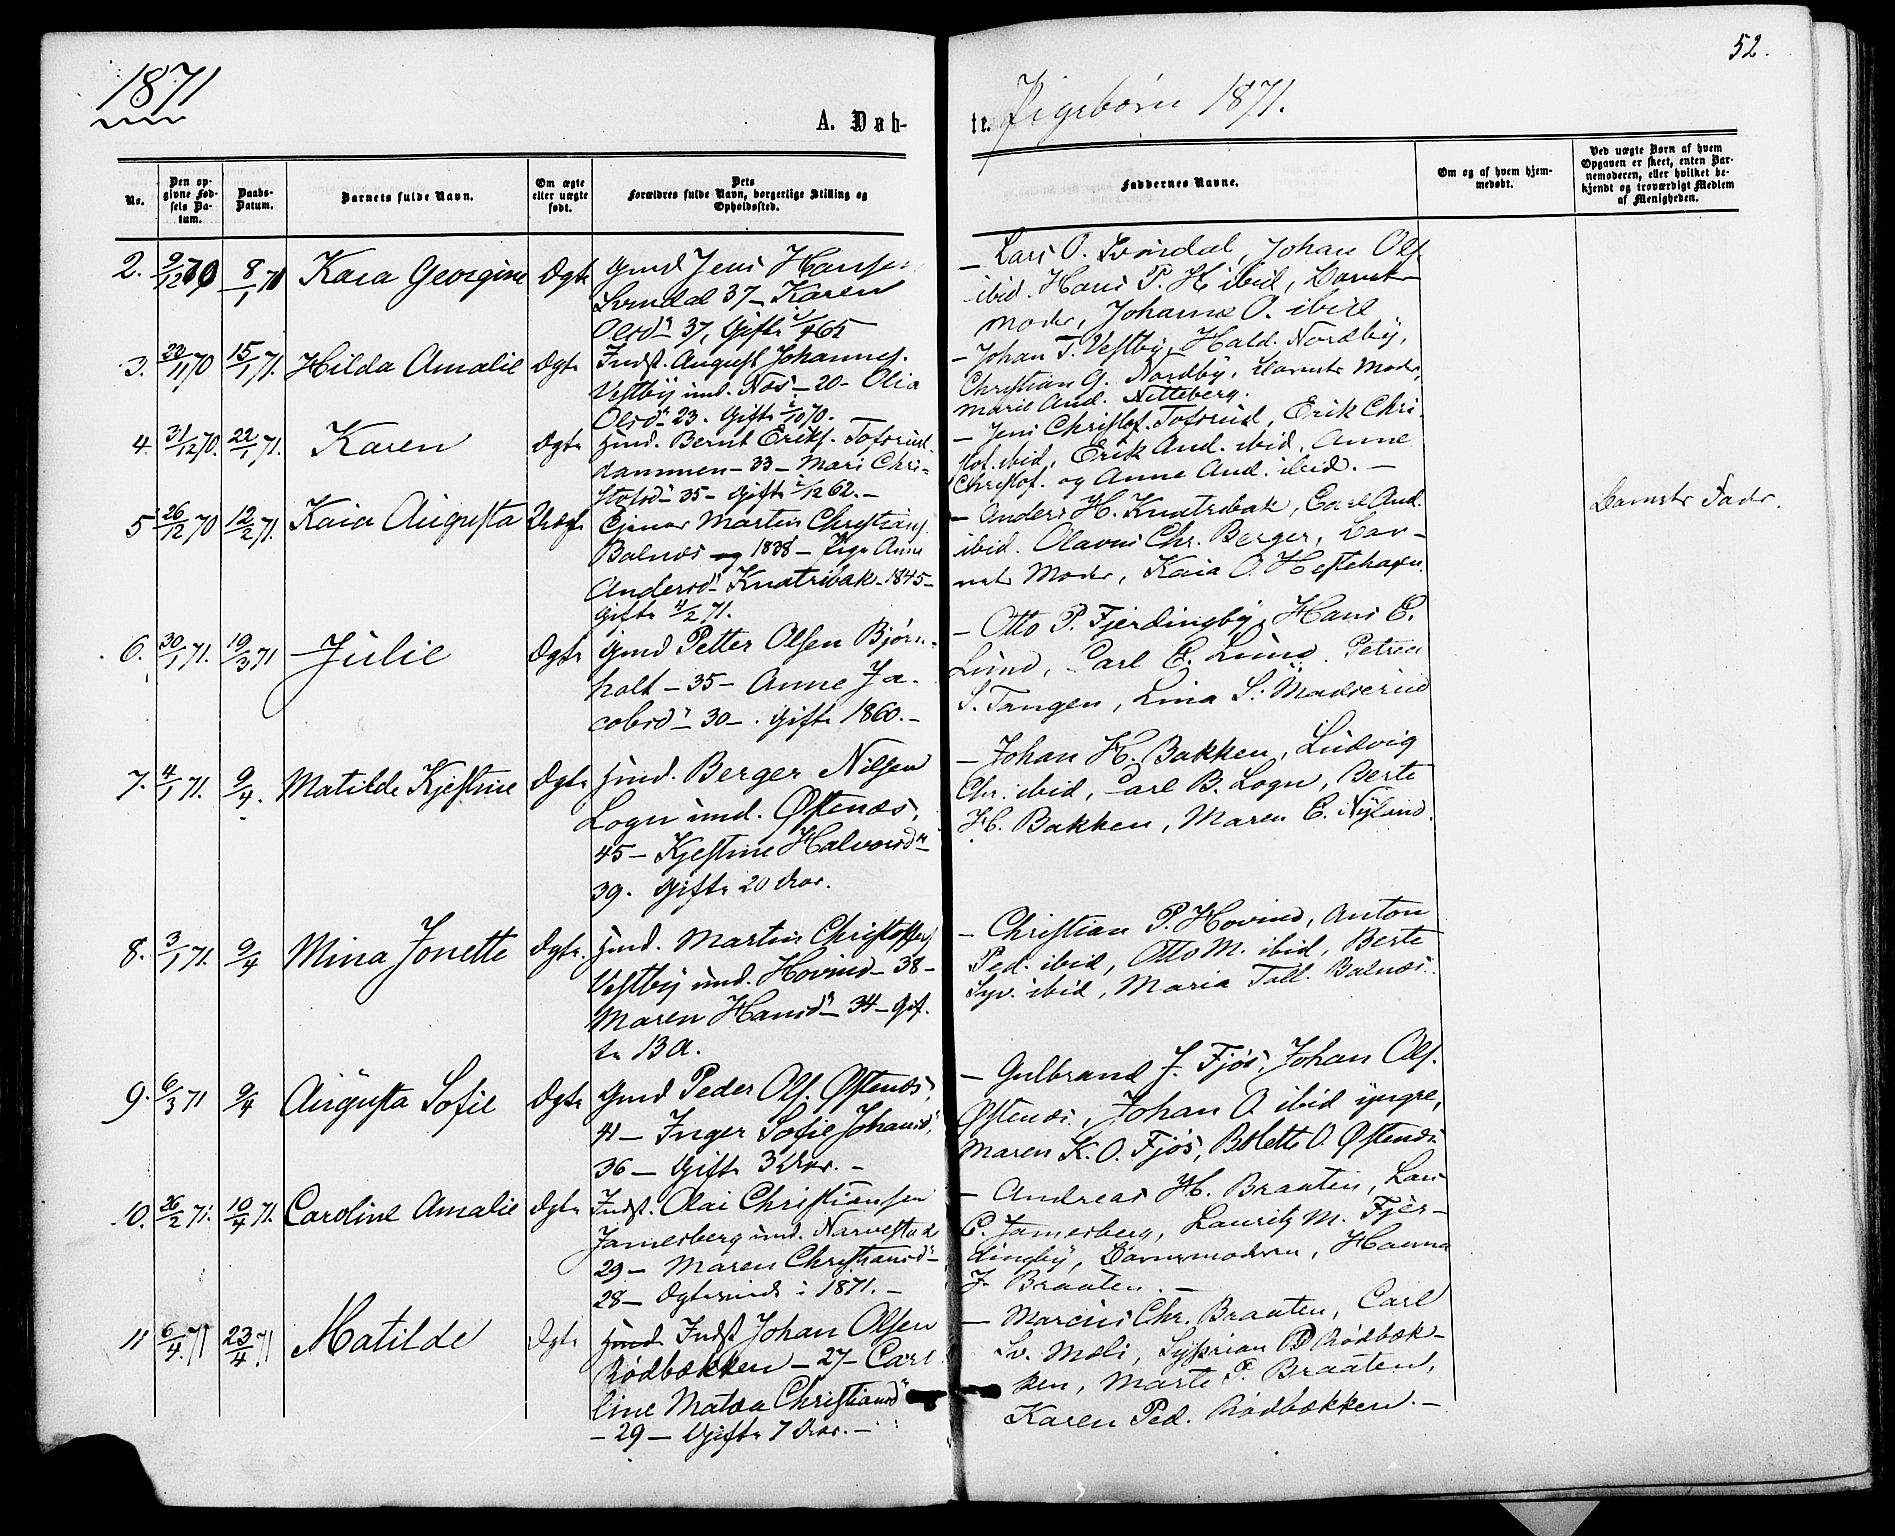 52.
1871
A. Døb-
te. Pigebørn 1871.
No.
Den op-
givne Fød-
sels Da-
tum.
Daabs-
Datum.
Barnets fulde Navn.
Om ægte
eller uægte
født.
Dets
Forældres fulde Navn, borgerlige Stilling og
Opholdssted.
Faddernes Navne.
Om og af hvem hjem-
medøbt.
Ved uægte Børn af hvem
Opgaven er skeet, enten Bar-
nemoderen, eller hvilket be-
kjendt og troværdigt Medlem
af Menigheden.
2. 9/12 70 8/1 71 Kaia Georgine Ægte Gmd Jens Hansen
37 - Karen
Olsd. 37, Gifte 65
- Lars O. Johan Ols.
ibid. Hans P. H ibid, Barnets
Moder, Johanne O. ibid
3. /11 70 15/1 71. Hilda Amalie Ægte Indst. August Johannes.
Vestby und. Næs - 20 - Olia
Olsd. 23. Gifte /10 70. -
- Johan T. Vestby, Hald. Nordby,
Christian G. Nordby, Barnets Moder,
Marie And. Nitteberg.
4. 31/12 70. 22/1 71. Karen Ægte Huusmd. Bernt Eriks. Tofsrud
dammen - 33 - Mari Chri-
stofsd. 35 - Gifte /12 62. -
- Jens Christof. Tofsrud, Erik Chri-
stof. ibid, Erik And. ibid, Anne
Christof. og Anne And. ibid. -
5 26/12 70 12/2 71. Kaia Augusta Uægte Martin Christians.
Balnæs og 1838 - Pige Anne
Andersd. Knatribak - 1845 -
Gifte /2 71.
- Anders H. Knatribak, Carl And.
ibid. Olavus Chr. Berger, Bar-
nets Moder, Kaia O. Hestehagen.
Barnets Fader.
6. 30/1 71. 19/3 71 Julie Ægte Gmd Petter Olsen Bjørn-
holt - 35 - Anne Ja-
cobsd. 30 - . Gifte 1860. -
- Otto P. Fjerdingby, Hans E.
Lund, Carl E. Lund. Petrea
S. Tangen, Lina S. Madserud
7. 4/1 71. 9/4. Matilde Kjestine Ægte Huusmd. Berger Nilsen
Logn und. Østenæs,
45 - Kjestine Halvorsd.
39. Gifte 20 Aar.
- Johan H. Bakken, Ludvig
Chr. ibid, Carl B. Logn, Berte
H. Bakken, Maren E. Nyland.
8. 3/1 71. 9/4 Mina Jonette Ægte. Huusmd. Martin Christoffers.
Vestby und. Hovind - 38 -
Maren Hansd. 34 - Gif-
te 13 A.
- Christian P. Hovind, Anton
Ped. ibid, Otto M. ibid, Berte
Syv. ibid, Maria Toll. Balnæs.
9. 6/3 71 9/4 Augusta Sofie Ægte Gmd Peder Ols. Østenæs,
41 - Inger Sofie Johansd.
36 - Gifte 3 Aar. -
- Gulbrand J. Fjøs, Johan Ols.
Østenæs, Johan O. ibid yngre,
Maren K. O. Fjøs, Bolette O. Østenæs
10. 26/2 71. 10/4 71. Caroline Amalie Ægte Indst. Olai Christiansen
Jamesberg und. Narvestad
29 - Maren Christiansd.
28 - Ægteviede i 1871. -
- Andreas H. Braaten, Lars
C. Jamesberg, Lauritz M. Fjer-
dingby, Barnemoderen, Hanna
J. Braaten. -
11 6/4 71 23/4 71 Matilde Ægte Indst Johan Olsen
Rødbækken - 27 - Caro-
line Matea Christiansd.
- 29 - Gifte 7 Aar. -
- Marcus Chr. Braaten, Carl
Sv. Moli, Syprian P Rødbæk-
ken, Marte P. Braaten,
Karen Ped. Rødbækken. -